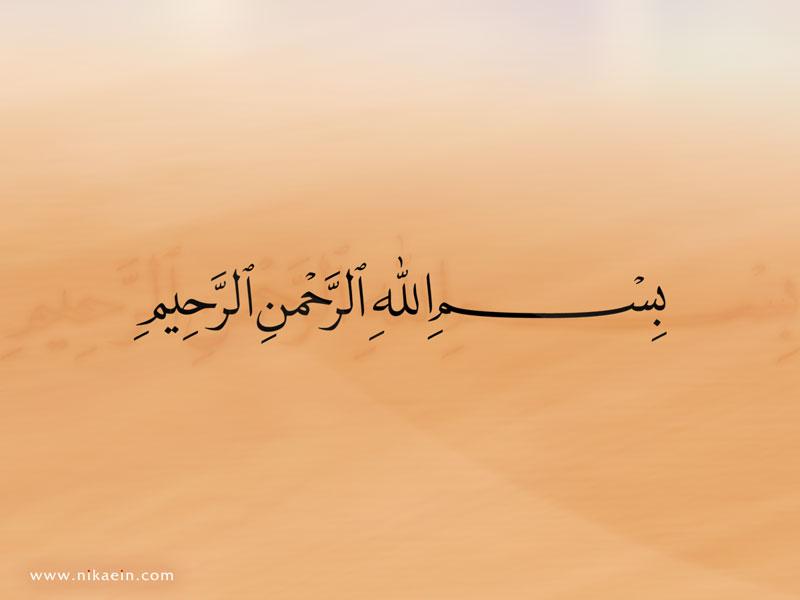 بِسْمِ اللهِ ٱلرَّحْمنِ ٱلرَّحِيمِ
www.nikaein.com